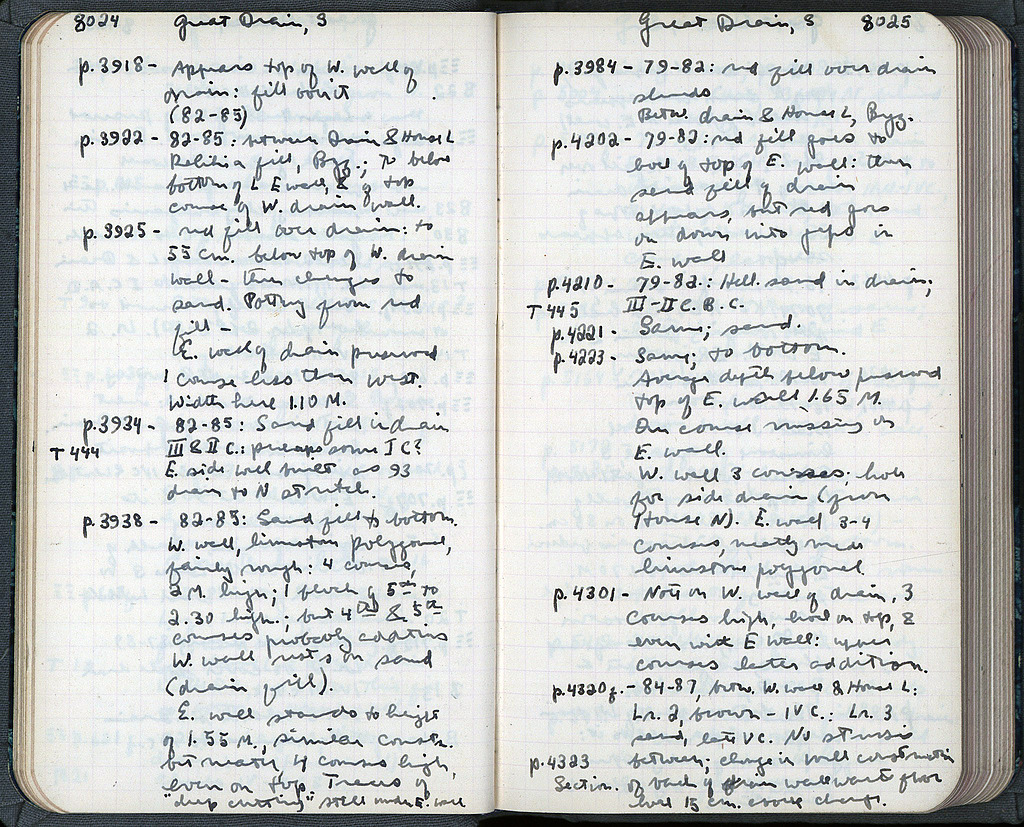 8024 Great Drain, S
p. 3918 - Appears top of W. wall of
drain: fill over it
(82-85)
p. 3922 - 82-85: between Drain & House L
fill, Byz.; To below
bottom of L E wall, & of top
course of W. drain wall.
p. 3925 - red fill over drain: to
55 cm. below top of W. drain
wall - then changes to
sand. Pottery from red
fill.
E. wall of drain preserved
1 course less than west.
Width here 1.10 M.
p. 3934 - 82-85: Sand fill in drain
T 444 III & II C.: perhaps some I C?
E. side well built as 93
drain to N stretch.
p. 3938 - 82-85: Sand fill to bottom.
W. wall, limestone polygonal,
fairly rough: 4 courses,
2 M. high; 1 block of 5th to
2.30 high.; but 4th & 5th
courses probably additions
W. wall rests on sand
(drain fill).
E. wall stands to height
of 1.55 M., similar constr.
but neater, 4 courses high,
even on top. Traces of
"deep cutting" still under E. wall
Great Drain, S 8025
p. 3984 - 79-82: red fill over drain
slabs
Betw. drain & House L, Byz.
p. 4202 - 79-82: red fill goes to
level of top of E. wall: then
sand fill of drain
appears, but red goes
on down into gaps in
E. wall
p. 4210 - 79-82: Hell. sand in drain;
T 445 III-II C. B.C.
p. 4221 - Same; sand.
p. 4223 - Same; to bottom.
Average depth below preserved
top of E. wall 1.65 M.
One course missing on
E. wall.
W. wall 3 courses; hole
for side drain (from
House N). E. wall 3-4
courses, neatly made
limestone polygonal
p. 4301 - Note on W. wall of drain, 3
courses high, level on top, &
even with E wall: upper
courses later addition.
p. 4320f. - 84-87, betw. W. wall & House L:
Lr. 2, brown - IV C.: Lr. 3
sand, late V C. No
p. 4323 between; change in wall construction
Section. of back of drain wall
level 15 cm. above change.